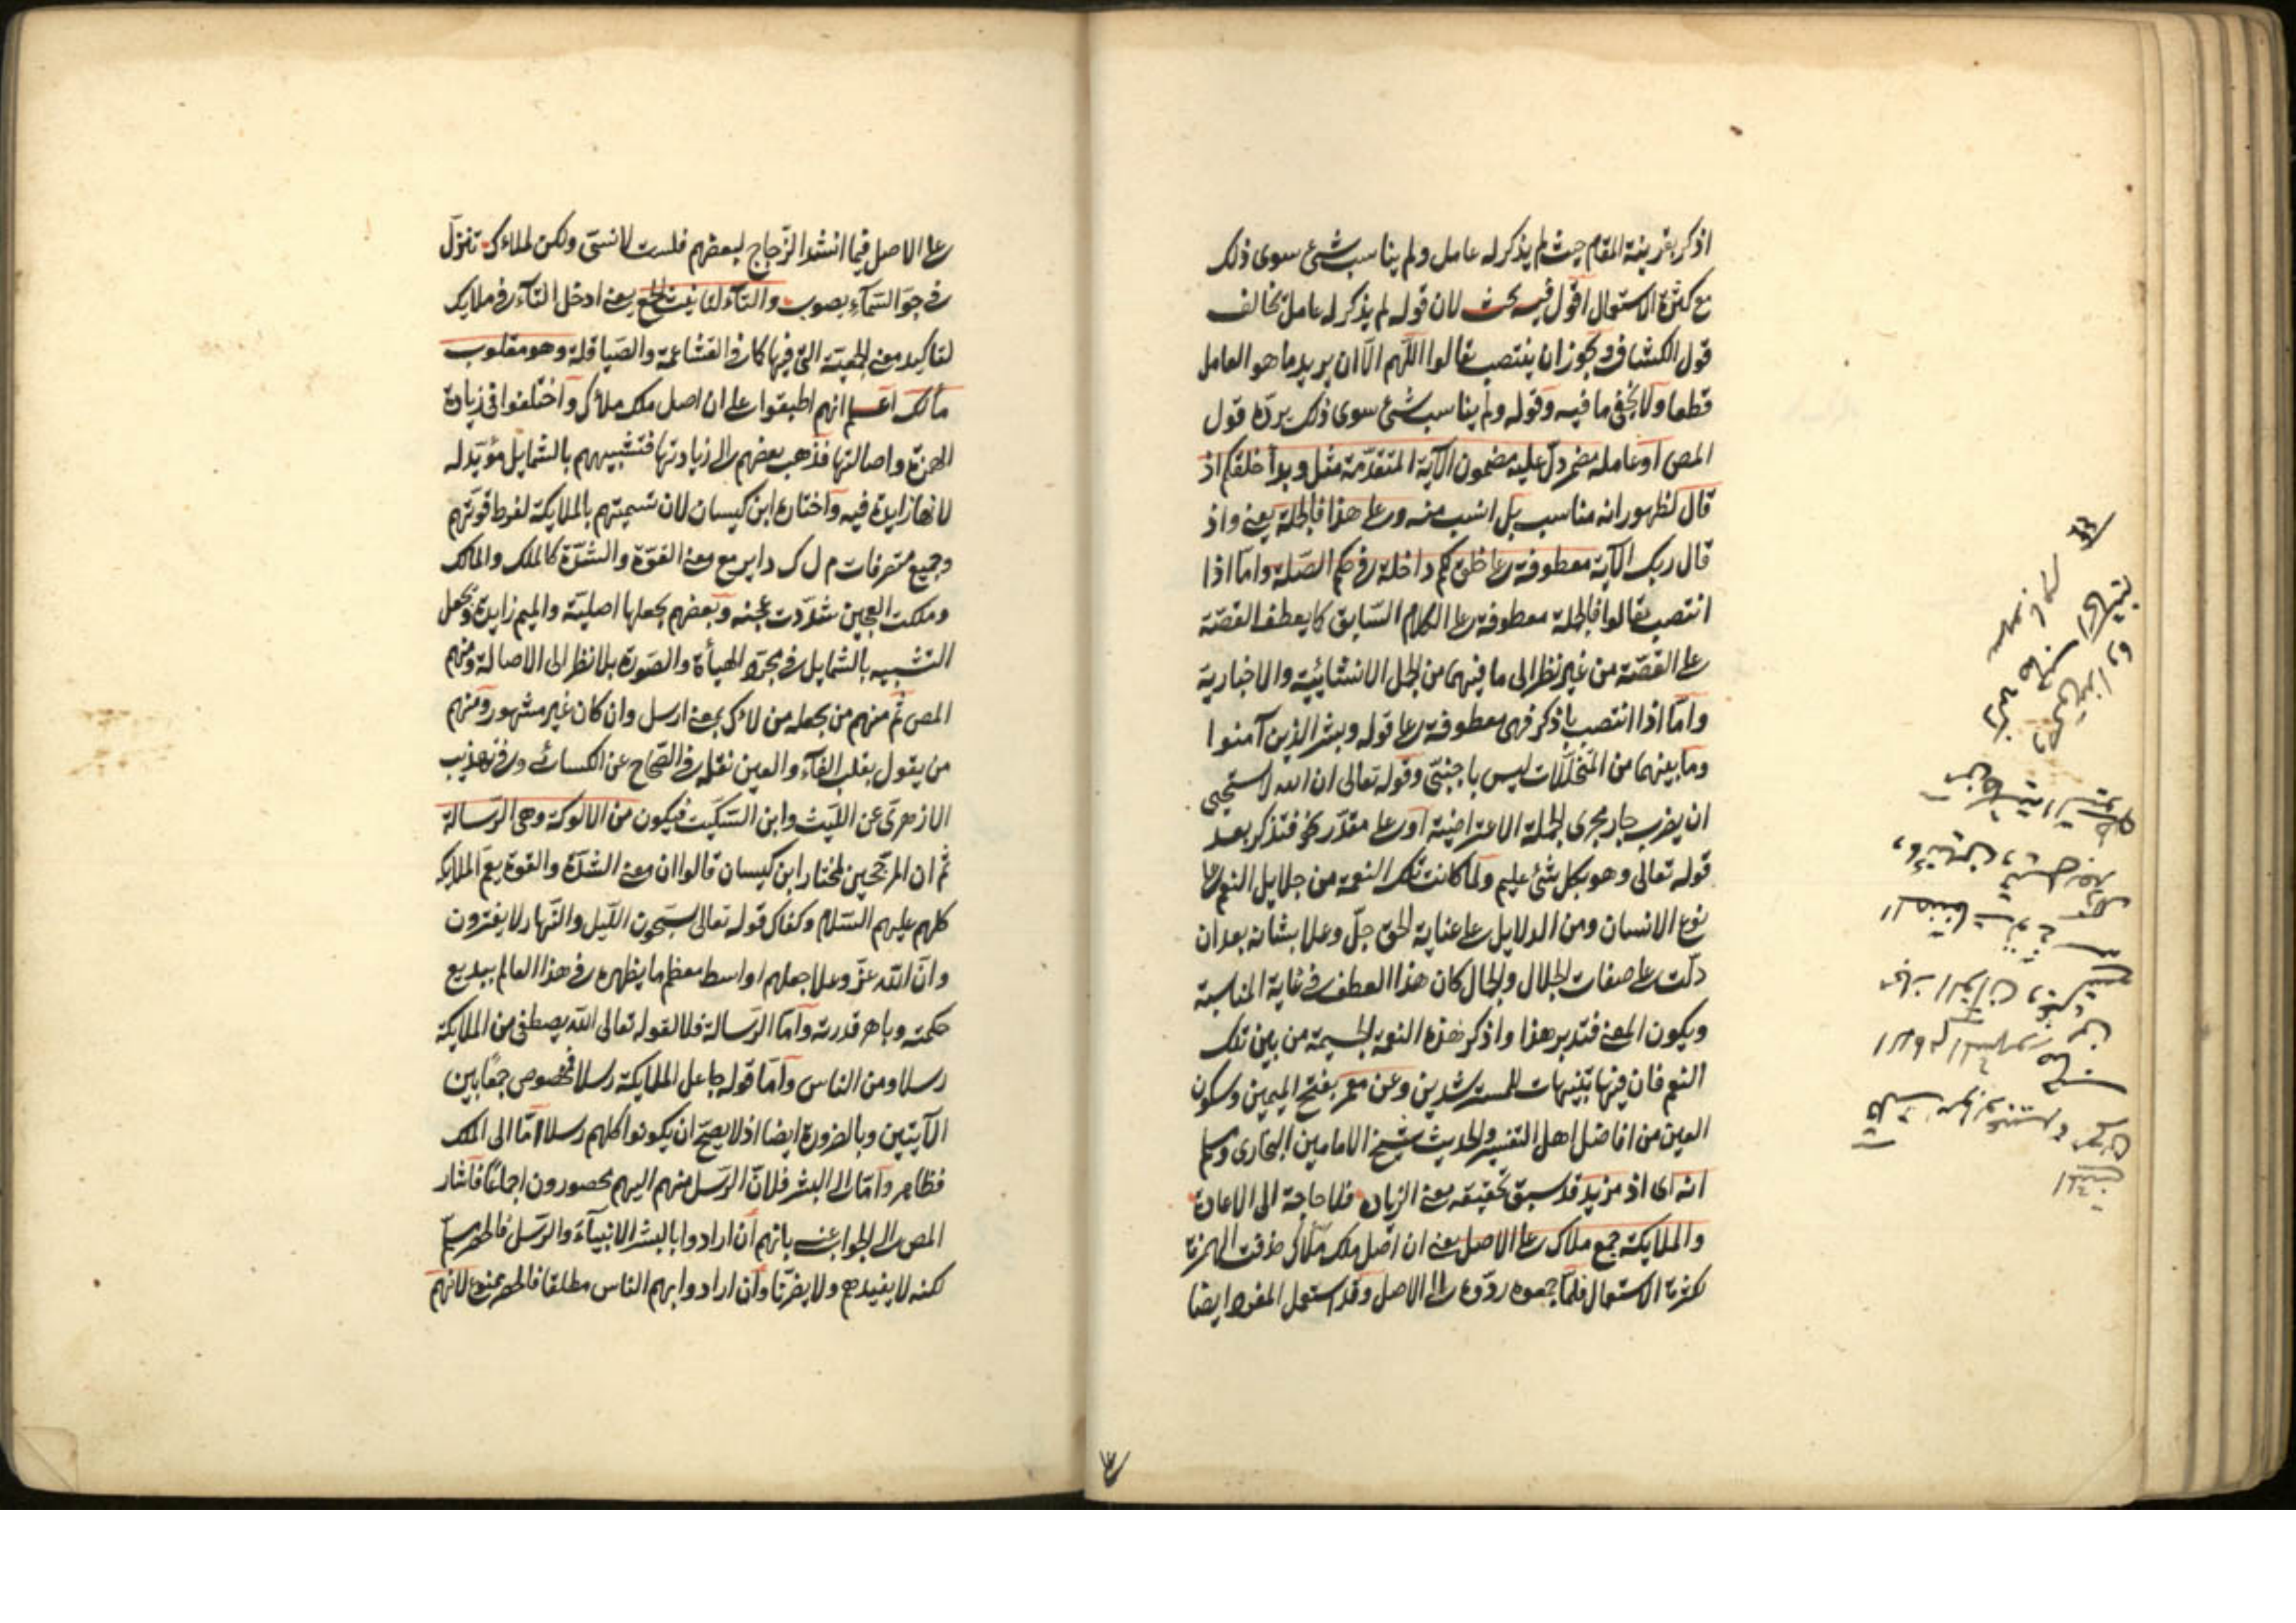 اذكر بقرينة المقام حيث لم يذكر له عامل ولم يناسب شئ سوى ذلك
مع كثرة الاستعمال اقول فيه بحث لان قوله لم يذكر له عامل يخالف
قول الكشاف ويجوز ان ينتصب بقالوا اللهم الا ان يريد ما هو العامل
قطعا ولا يخفى ما فيه وقوله ولم يناسب شئ سوى ذلك يردّه قول
المص او عامله مضمر دلّ عليه مضمون الآية المتقدّمة مثل وبدأ خلقكم اذ
قال لظهور انه مناسب بل انسب منه وعلى هذا فالجملة يعنى واذ
قال ربك الآية معطوفة على خلق لكم داخلة فى حكم الصّلة وامّا اذا
انتصب بقالوا فالجملة معطوفة على الكلام السّابق كما يعطف القصّة
على القصّة من غير نظر الى ما فيهما من الجمل الانشائيّة والاخباريّة
وامّا اذا انتصب باذكر فهى معطوفة على قوله وبشر الذين آمنوا
وما بينهما من المتخلّلات ليس باجنبىّ وقوله تعالى ان الله لا يستحيى
ان يضرب جار مجرى الجملة الاعتراضيّة او على مقدّر نحو فتذكر بعد
قوله تعالى وهو بكل شئ عليم ولمّا كانت تلك النعمة من جلايل النعم على
نوع الانسان ومن الدلايل على عناية الحق جلّ وعلا بشانه بعد ان
دلّت على صفات الجلال والجمال كان هذا العطف فى غاية المناسبة
ويكون المعنى فتدبر هذا واذكر هذه النعمة الجسيمة من بين تلك
النعم فان فيها تنبيهات للمسترشدين وعن معمر بفتح الميمين وسكون
العين من افاضل اهل التفسير والحديث شيخ الامامين البخارى ومسلم
انه اى اذ مزيد قد سبق تحقيقه معنى الزيادة فلا حاجة الى الاعادة
والملايكة جمع ملأك على الاصل يعنى ان اصل ملك ملأك حذفت الهمزة
لكثرة الاستعمال فلمّا جمعوه ردّوه الى الاصل وقد استعمل المفرد ايضا
على الاصل فيما انشد الزّجاج لبعضهم فلست لانسىّ ولكن لملاءك تنزّل
فى جوّ السّماء يصوب والتاء لتانيث الجمع يعنى ادخل التاء فى ملايك
لتاكيد معنى الجمعيّة التى فيها كما فى القشاعمة والصّياقلة وهو مقلوب
مألك اعلم انهم اطبقوا على ان اصل ملك ملأك واختلفوا فى زيادة
الهمزة واصالتها فذهب بعضهم الى زيادتها فتشبيههم بالشمايل مؤيّد له
لانها زايدة فيه واختاره ابن كيسان لان تسميتهم بالملايكة لفرط قوّتهم
وجميع متصرفات م ل ك داير مع معنى القوّة والشدّة كالملك والمالك
وملكت العجين شدّدت عجنه وبعضهم يجعلها اصليّة والميم زايدة ويجعل
التشبيه بالشمايل فى مجرّد الهيأة والصّورة بلا نظر الى الاصالة ومنهم
المص ثم منهم من يجعله من لاءك بمعنى ارسل وان كان غير مشهور ومنهم
من يقول بقلب الفاء والعين نقله فى الصّحاح عن الكسائى وفى تهذيب
الازهرىّ عن اللّيث وابن السّكيت فيكون من الالوكة وهى الرّسالة
ثم ان المرجّحين لمختار ابن كيسان قالوا ان معنى الشدّة والقوة يعمّ الملايكة
كلهم عليهم السّلام وكفاك قوله تعالى يسبّحون اللّيل والنّهار لا يفترون
وانّ الله عزّ وعلا جعلهم اواسط معظم ما يظهره فى هذا العالم ببديع
حكمته وباهر قدرته وامّا الرّسالة فلا لقوله تعالى الله يصطفى من الملايكة
رسلا ومن الناس وامّا قوله جاعل الملايكة رسلا فمخصوص جمعا بين
الآيتين وبالضرورة ايضا اذ لا يصحّ ان يكونوا كلهم رسلا امّا الى الملك
فظاهر وامّا الى البشر فلانّ الرّسل منهم اليهم محصورون اجماعًا فاشار
المص الى الجواب عنه بانهم ان ارادوا بالبشر الانبياء والرّسل فالحصر مسلّم
لكنه لا يفيدهم ولا يضرّنا وان ارادوا بهم الناس مطلقا فالحصر ممنوع لانهم